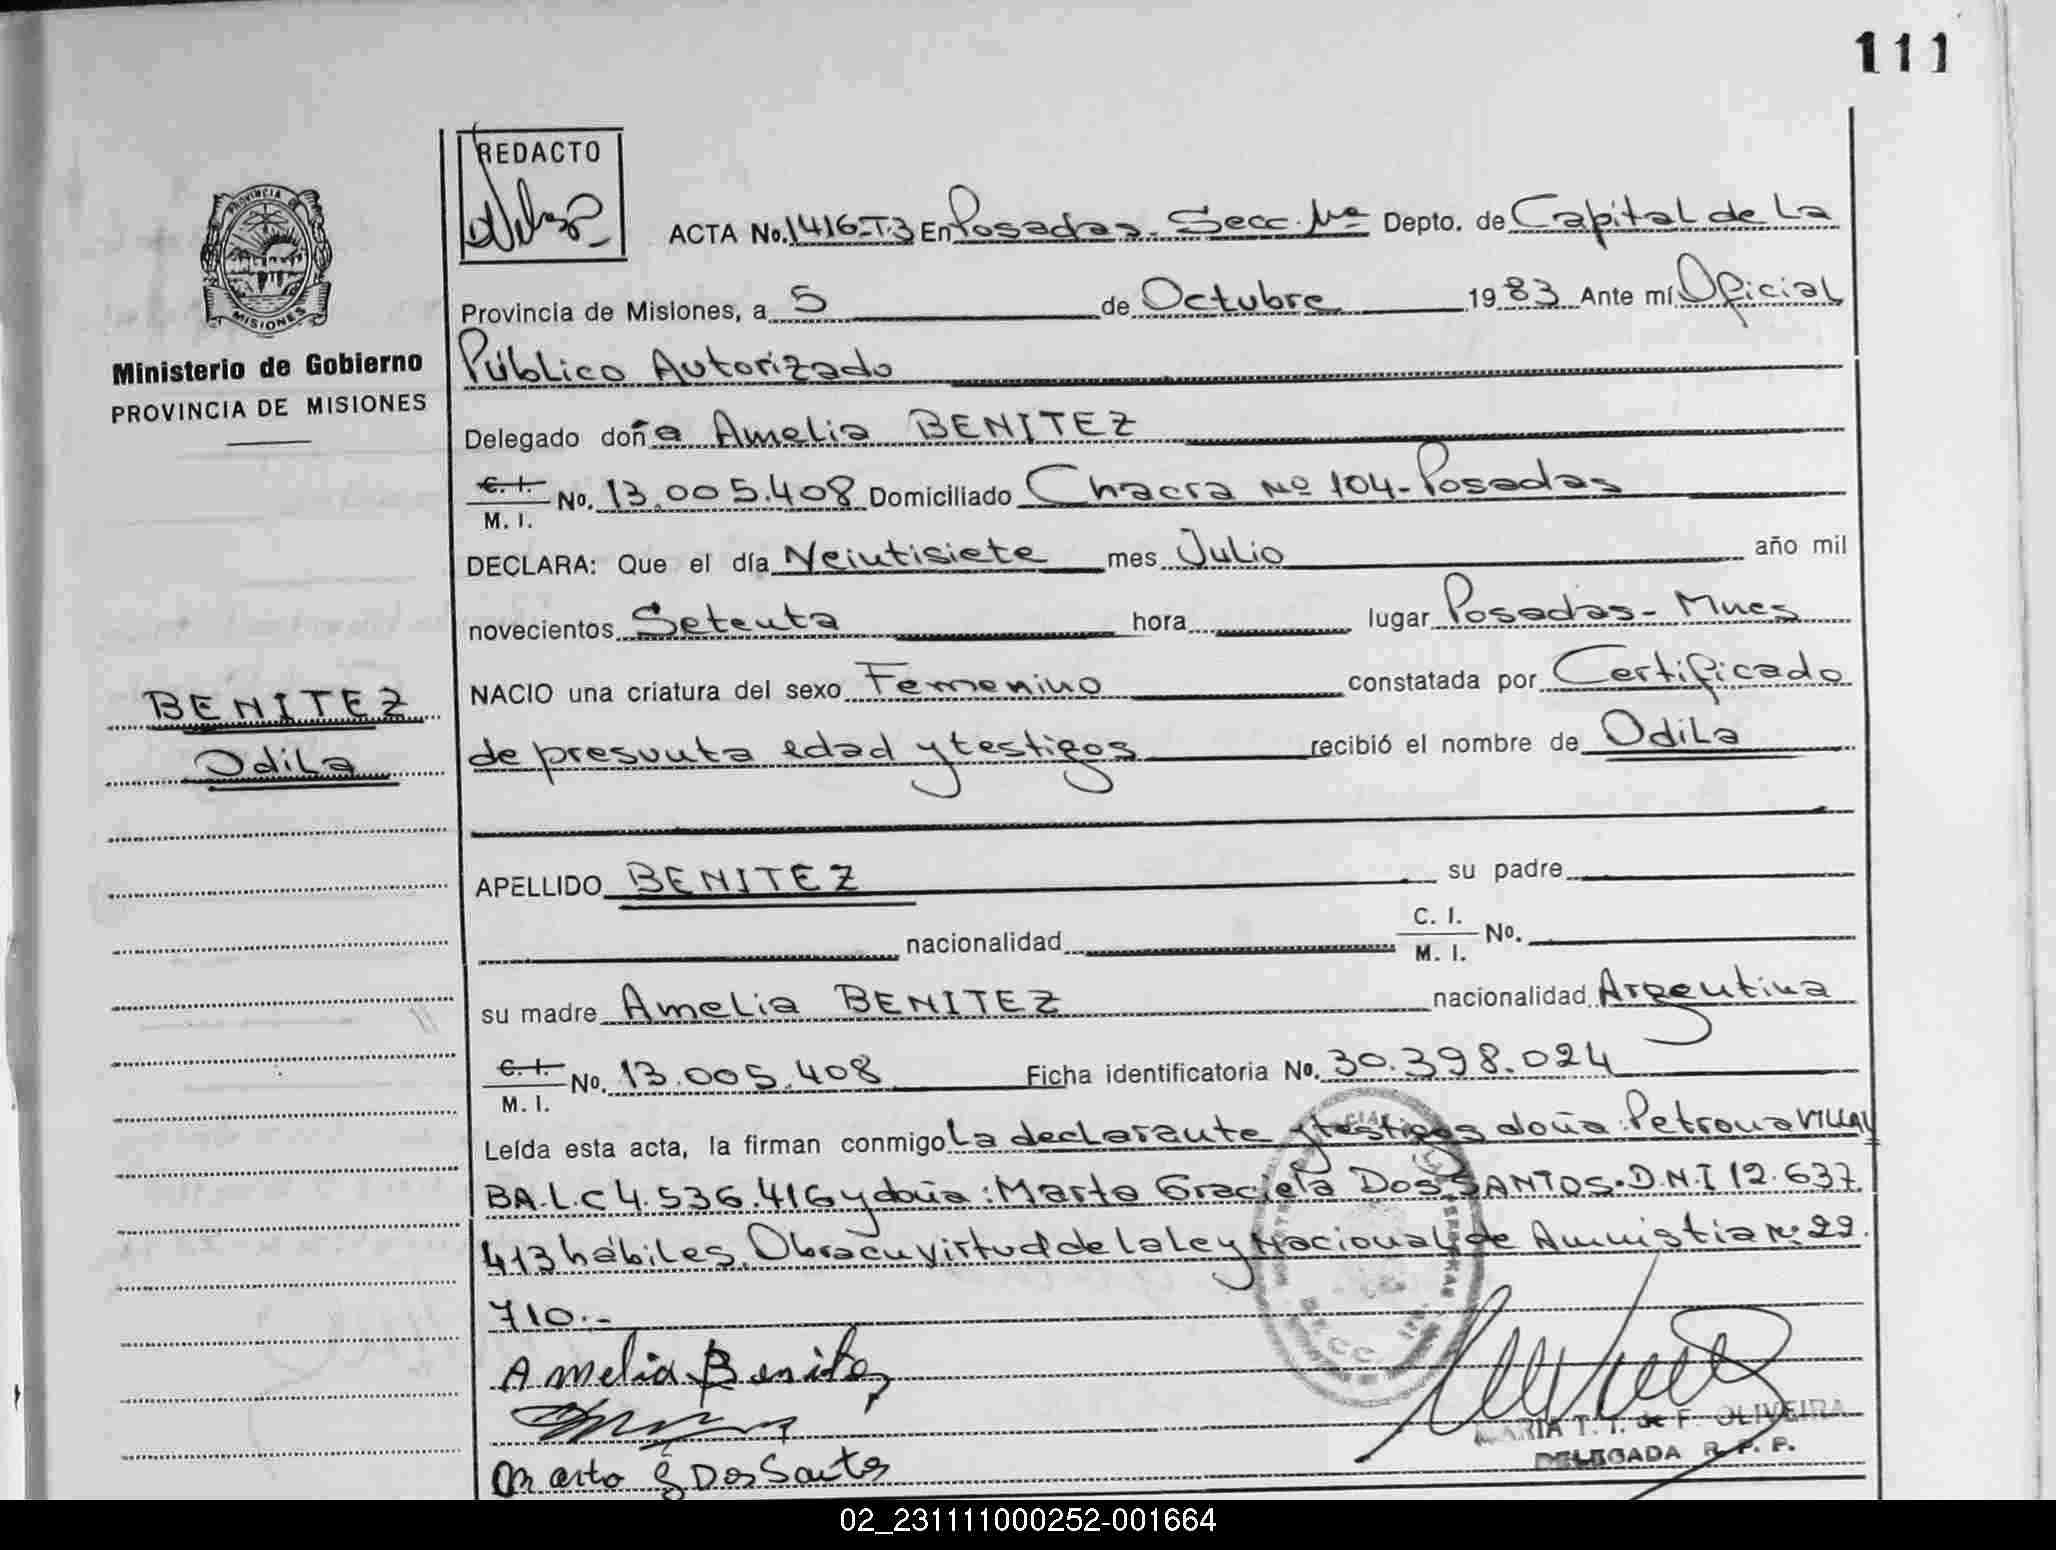 111
REDACTO
ACTA No. 1416-T.3 En Posadas. Secc. 1ra Depto. de Capital de La
Provincia de Misiones, a 5 de Octubre 1983 Ante mí Oficial
Público Autorizado
PROVINCIA DE
MISIONES
Ministerio de Gobierno
PROVINCIA DE MISIONES
Delegado doña Amelia BENITEZ
C. I.
M. I. No. 13.005.408 Domiciliado Chacra Nº 104-Posadas
DECLARA: Que el día Veintisiete mes Julio año mil
novecientos Setenta hora lugar Posadas- Mnes
NACIO una criatura del sexo Femenino constatada por Certificado
BENITEZ
Odila
de presunta edad y testigos recibió el nombre de Odila
APELLIDO BENITEZ su padre
nacionalidad C. I.
M. I. No.
su madre Amelia BENITEZ nacionalidad Argentina
C. I.
M. I. No. 13.005.408 Ficha identificatoria No. 30.398.024
Leída esta acta, la firman conmigo La declarante y testigos doña: Petrona VILLAL
BA.L.C 4.536.416 y doña: Marta Graciela DOS SANTOS.D.N.I 12.637.
413 hábiles. Obra en virtud de la Ley Nacional de Amnistia Nº 22.
710.-
Amelia Benitez
Marta G Dos Santos
MARIA T. I. de F. OLIVEIRA
DELEGADA R. P. P.
02_231111000252-001664